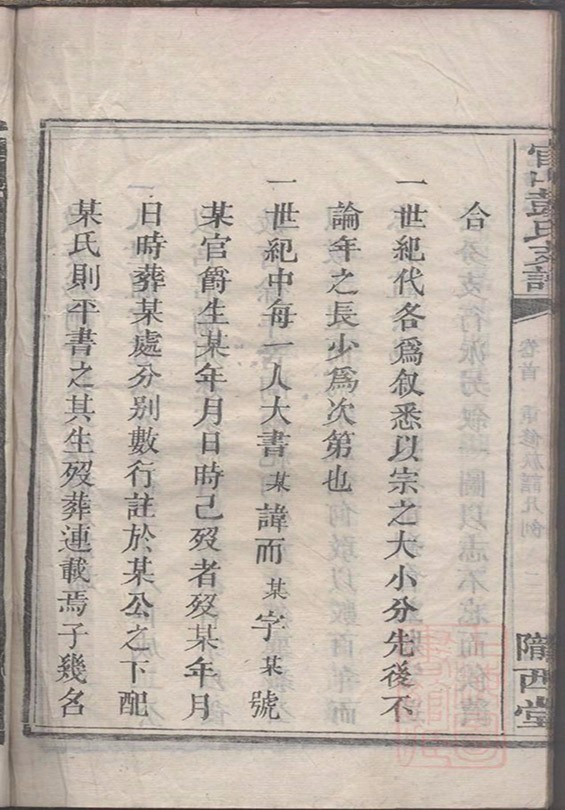 官山彭氏支譜
卷首 重修族譜凡例
隴西堂
合
一世紀代各爲叙悉以宗之大小分先後不
論年之長少爲次第也
一世紀中每一人大書某諱而某字某號
某官爵生某年月日時已歿者歿某年月
日時葬某處分別數行註於某公之下配
某氏則平書之其生歿葬連載焉子幾名